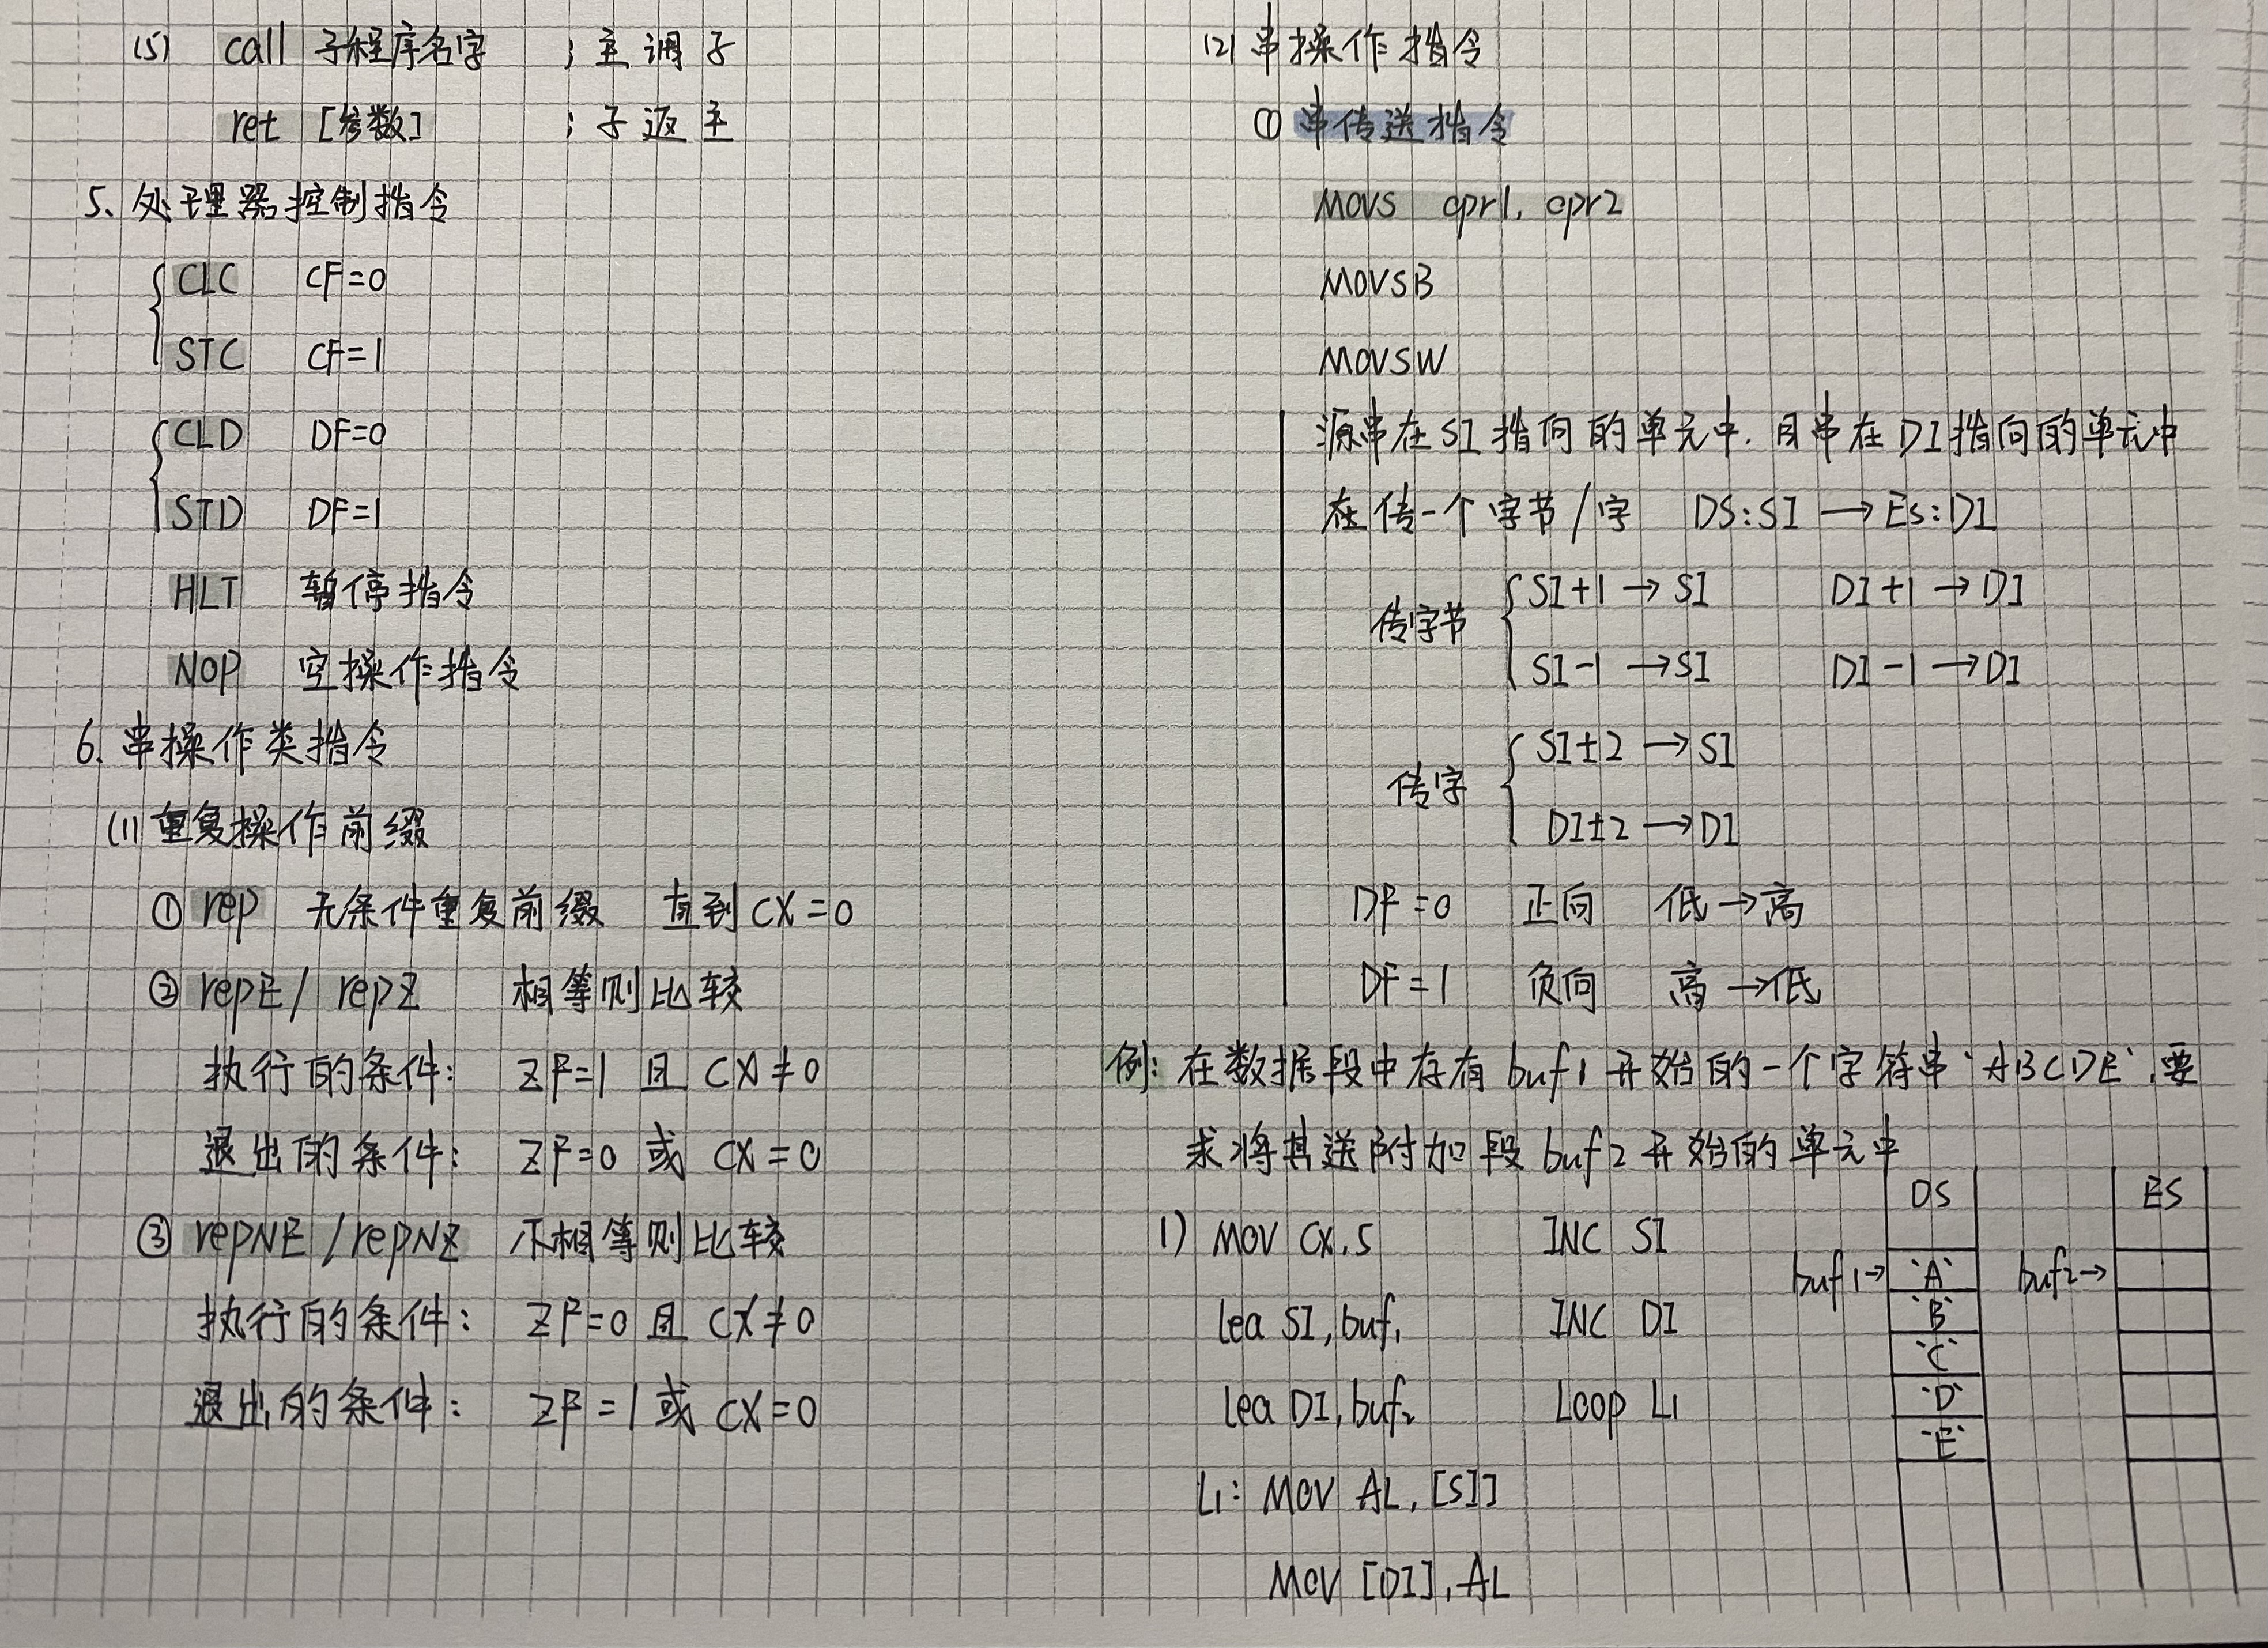 (5) call 子程序名字 ; 主调子
ret [参数] ; 子返主
5、处理器控制指令
CLC CF=0
STC CF=1
CLD DF=0
STD DF=1
HLT 暂停指令
NOP 空操作指令
6. 串操作类指令
(1) 重复操作前缀
① rep 无条件重复前缀 直到 CX=0
② repE / repZ 相等则比较
执行的条件: ZF=1 且 CX≠0
退出的条件: ZF=0 或 CX=0
③ repNE / repNZ 不相等则比较
执行的条件: ZF=0 且 CX≠0
退出的条件: ZF=1 或 CX=0
(2) 串操作指令
① 串传送指令
MOVS opr1, opr2
MOVSB
MOVSW
源串在SI指向的单元中, 目串在DI指向的单元中
在传一个字节/字 DS:SI → ES:DI
传字节 SI+1 → SI DI+1 → DI
SI-1 → SI DI-1 → DI
传字 SI±2 → SI
DI±2 → DI
DF=0 正向 低→高
DF=1 负向 高→低
例: 在数据段中存有buf1开始的一个字符串'ABCDE', 要
求将其送附加段buf2开始的单元中
1) MOV CX, 5 INC SI
lea SI, buf1 INC DI
lea DI, buf2 Loop L1
L1: MOV AL, [SI]
MOV [DI], AL
DS ES
buf1→ 'A' buf2→
'B'
'C'
'D'
'E'